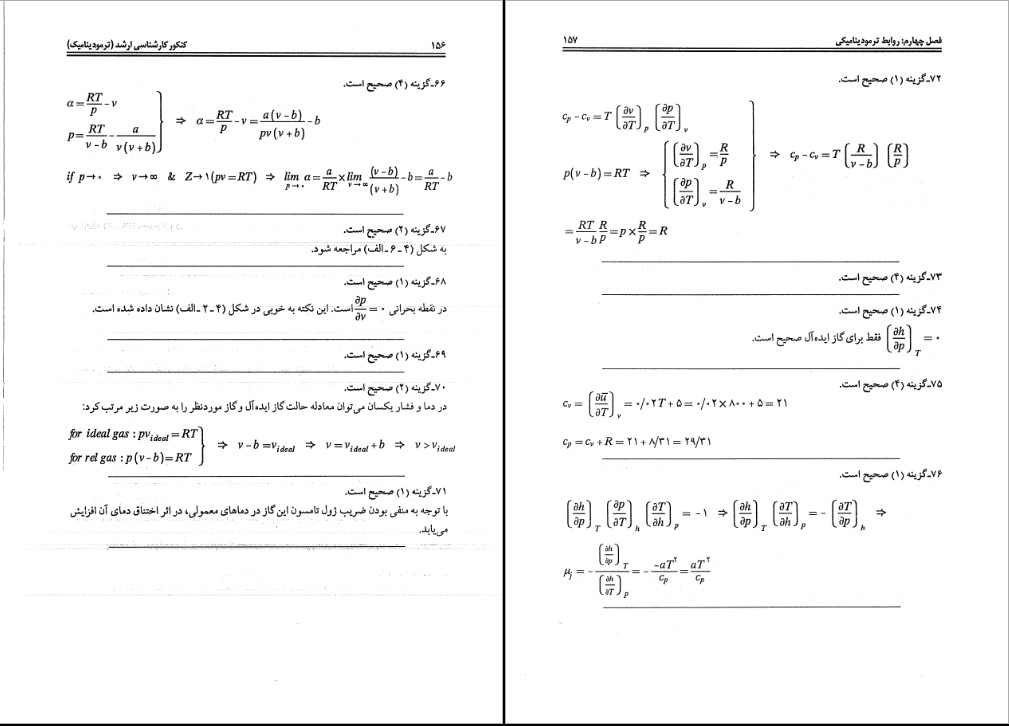 ۱۵۶ کنکور کارشناسی ارشد (ترمودینامیک)
۶۶ـ گزینه (۴) صحیح است.
α = RT/p - v
p = RT/(v-b) - a/(v(v+b))
⇒ α = RT/p - v = a(v-b)/(pv(v+b)) - b
if p→۰ ⇒ v→∞ & Z→۱(pv=RT) ⇒ lim p→۰ α = a/RT × lim v→∞ (v-b)/(v+b) - b = a/RT - b
۶۷ـ گزینه (۲) صحیح است.
به شکل (۴ـ۶ـالف) مراجعه شود.
۶۸ـ گزینه (۱) صحیح است.
در نقطه بحرانی ∂p/∂v = ۰ است. این نکته به خوبی در شکل (۴ـ۲ـالف) نشان داده شده است.
۶۹ـ گزینه (۱) صحیح است.
۷۰ـ گزینه (۲) صحیح است.
در دما و فشار یکسان می‌توان معادله حالت گاز ایده‌آل و گاز موردنظر را به صورت زیر مرتب کرد:
for ideal gas : pv_ideal = RT
for rel gas : p(v-b) = RT
⇒ v-b = v_ideal ⇒ v = v_ideal + b ⇒ v > v_ideal
۷۱ـ گزینه (۱) صحیح است.
با توجه به منفی بودن ضریب ژول تامسون این گاز در دماهای معمولی، در اثر اختناق دمای آن افزایش
می‌یابد.
فصل چهارم: روابط ترمودینامیکی ۱۵۷
۷۲ـ گزینه (۱) صحیح است.
c_p - c_v = T (∂v/∂T)_p (∂p/∂T)_v
p(v-b) = RT ⇒ { (∂v/∂T)_p = R/p
(∂p/∂T)_v = R/(v-b)
⇒ c_p - c_v = T (R/(v-b)) (R/p)
= RT/(v-b) R/p = p × R/p = R
۷۳ـ گزینه (۴) صحیح است.
۷۴ـ گزینه (۱) صحیح است.
(∂h/∂p)_T = ۰ فقط برای گاز ایده‌آل صحیح است.
۷۵ـ گزینه (۴) صحیح است.
c_v = (∂ū/∂T)_v = ۰/۰۲T + ۵ = ۰/۰۲ × ۸۰۰ + ۵ = ۲۱
c_p = c_v + R = ۲۱ + ۸/۳۱ = ۲۹/۳۱
۷۶ـ گزینه (۱) صحیح است.
(∂h/∂p)_T (∂p/∂T)_h (∂T/∂h)_p = -۱ ⇒ (∂h/∂p)_T (∂T/∂h)_p = -(∂T/∂p)_h ⇒
μ_j = - (∂h/∂p)_T / (∂h/∂T)_p = - (-aT²)/c_p = aT²/c_p